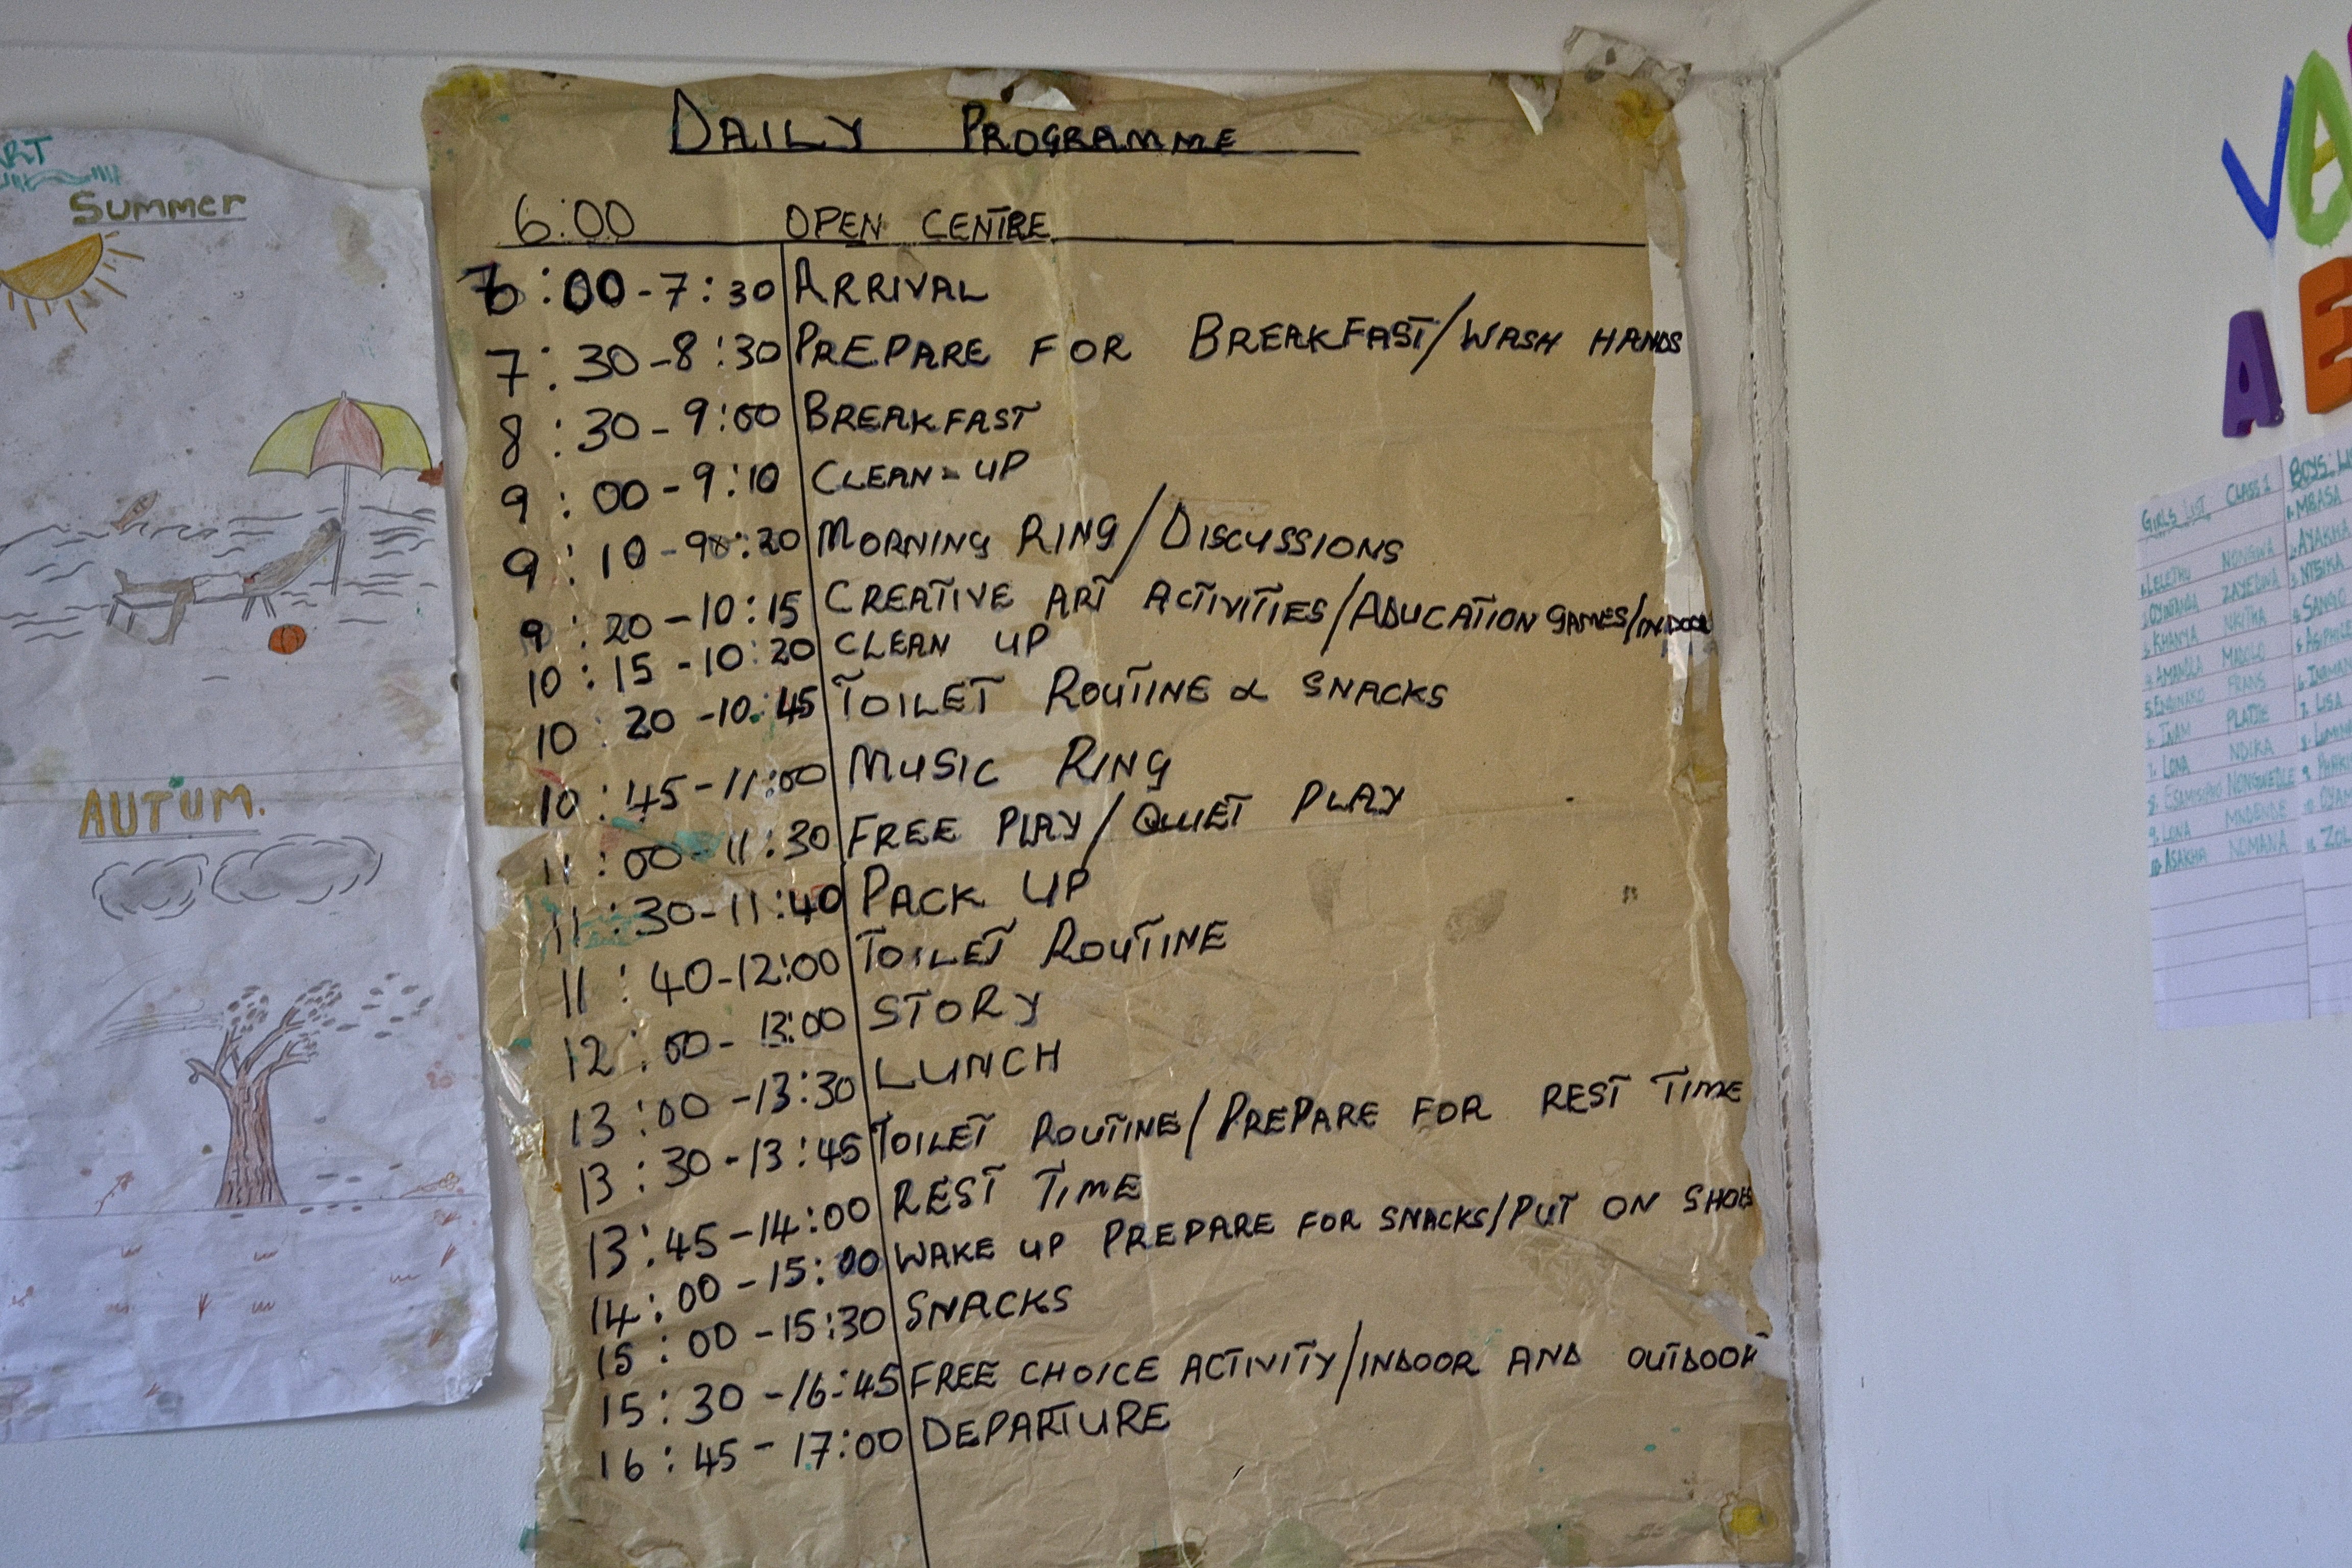 ART
Summer
AUTUM.
DAILY PROGRAMME
6:00 OPEN CENTRE
:00-7:30 ARRIVAL
7:30-8:30 PREPARE FOR BREAKFAST/WASH HANDS
8:30-9:00 BREAKFAST
9:00-9:10 CLEAN-UP
9:10- MORNING RING/DISCUSSIONS
9:20-10:15 CREATIVE ART ACTIVITIES/ADUCATION GAMES/INDOOR
10:15-10:20 CLEAN UP
10:20-10:45 TOILET ROUTINE & SNACKS
10:45-11:00 MUSIC RING
11:00-11:30 FREE PLAY/QUIET PLAY
11:30-11:40 PACK UP
11:40-12:00 TOILET ROUTINE
12:00-13:00 STORY
13:00-13:30 LUNCH
13:30-13:45 TOILET ROUTINE/PREPARE FOR REST TIME
13:45-14:00 REST TIME
14:00-15:00 WAKE UP PREPARE FOR SNACKS/PUT ON SHOES
15:00-15:30 SNACKS
15:30-16:45 FREE CHOICE ACTIVITY/INDOOR AND OUTDOOR
16:45-17:00 DEPARTURE
VA
AE
GIRLS LIST CLASS 1
1. LELETHU NONGWA
ZAYEDWA
3. KHANYA NKITHA
4. AMANDLA MADOLO
FRANS
6. INAM PLATJIE
7. LONA NDIKA
NONGWEDLE
9. LONA MNDENDE
10. ASAKHA NOMANA
BOYS
1. MBASA
AYAKHA
NTSIKA
4. SANGO
7. LISA